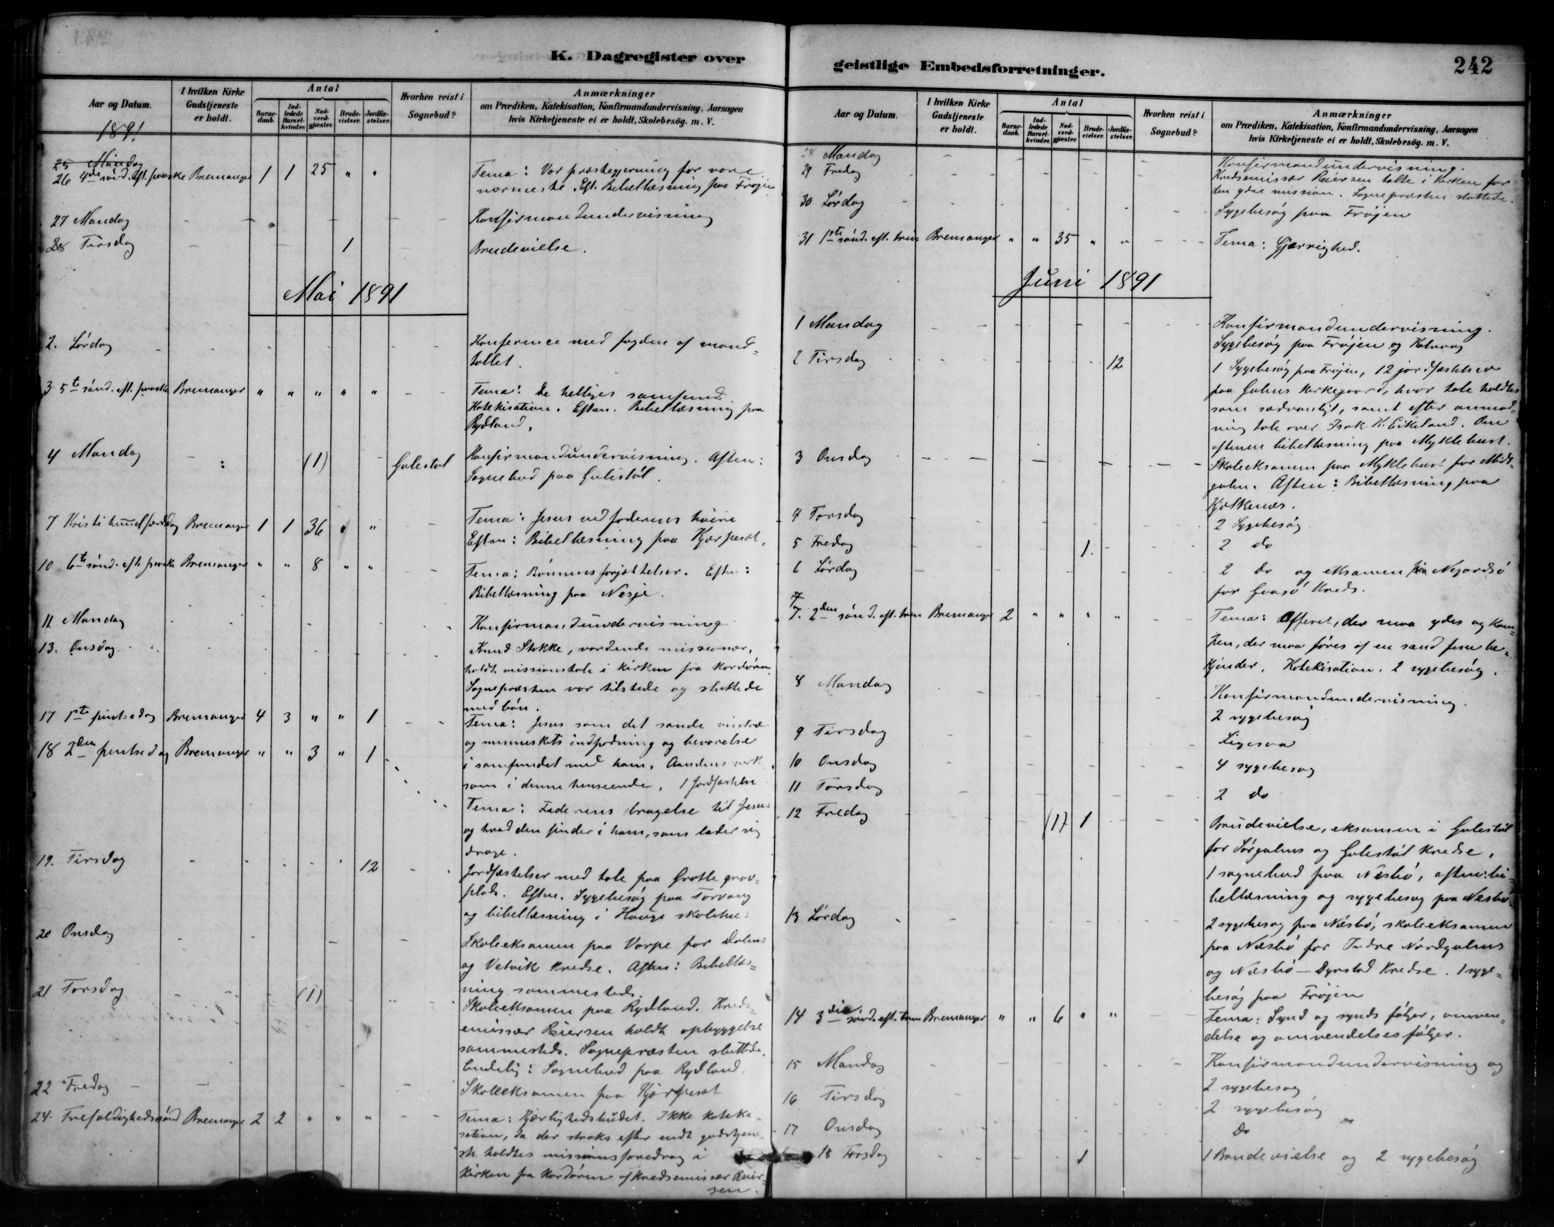 K. Dagregister over
Aar og Datum.
I hvilken Kirke Gudstjeneste er holdt.
Antal
Barnedaab.
Indledede Barselkvinder.
Nadverdgjæster.
Brudevielser.
Jordfæstelser.
Hvorhen reist i Sognebud?
Anmærkninger
om Prædiken, Katekisation, Konfirmandundervisning, Aarsagen
hvis Kirketjeneste ei er holdt, Skolebesøg. m. V.
1891
25 Mandag
26 4de sønd. eft. paaske Bremanger 1 1 25 " " Tema: Vor præstegjerning for vore
nærmeste. Eft. Bibellæsning paa Frøjen
27 Mandag Konfirmandundervisning
28 Tirsdag 1 Brudevielse.
Mai 1891
2. Lørdag Konference med fogden af mand-
tallet.
3 5te sønd. eft. paaske Bremanger " " " " " Tema: De helliges samfund.
Katekisation. Eften. Bibellæsning paa
Rydland.
4 Mandag (1) Gulestøl Konfirmandundervisning. Aften:
Sognebud paa Gulestøl.
7 Kristi himmelfartsdag Bremanger 1 1 36 " " Tema: Jesus ved faderens høire
Eften: Bibellæsning paa Kjærpesæt.
10 6te sønd. eft. paaske Bremanger " " 8 " " Tema: Bønnens forjættelser. Eften:
Bibellæsning paa Nesje.
11 Mandag Konfirmandundervisning.
13. Onsdag Knud Stokke, vordende missionær,
holdt missionstale i kirken fra kordøren
Sognepræsten var tilstede og sluttede
med bøn.
17 1ste pintsedag Bremanger 4 3 " " 1 Tema: Jesus som det sande vintræ
og menneskets indpodning og bevarelse
i samfundet med ham. Aandens verk
som i denne henseende. 1 Jordfæstelse
18 2den pintsedag Bremanger " " 3 " 1
Tema: Faderens dragelse til Jesus
og hvad den finder i ham, som lader sig
drage.
19. Tirsdag 12 Jordfæstelser med tale paa Grotle grav-
plads. Eften. Sygebesøg paa Torvang
og bibellæsning i Hauge skolehus.
20 Onsdag Skoleeksamen paa Varpe for Dalens
og Vetvik Kredse. Aften: Bibellæs-
ning sammesteds.
21 Torsdag (1) Skoleeksamen paa Rydland. Kreds-
missær Reiersen holdt opbyggelse
sammesteds. Sognepræsten sluttede.
Endelig: Sognebud paa Rydland.
22 Fredag Skoleeksamen paa Kjærpesæt
24 Trefoldighedssønd Bremanger 2 2 " " " Tema: Kjærlighedsbudet. Ikke kateke-
sation, da der straks efter endt gudstjen-
ste holdtes missionsforedrag i
Kirken fra Kordøren af kredsemissær Reier-
sen.
geistlige Embedsforretninger.
242
Aar og Datum.
I hvilken Kirke Gudstjeneste er holdt.
Antal
Barnedaab.
Indledede Barselkvinder.
Nadverdgjæster.
Brudevielser.
Jordfæstelser.
Hvorhen reist i Sognebud?
Anmærkninger
om Prædiken, Katekisation, Konfirmandundervisning, Aarsagen
hvis Kirketjeneste ei er holdt, Skolebesøg. m. V.
Mandag Konfirmandundervisning.
29 Fredag Kredsemissær Reiersen talte i Kirken for
den ydre mission. Sognepræsten sluttede.
30 Lørdag Sygebesøg paa Frøjen
31 1ste sønd. eft. trin Bremanger " " 35 " " Tema: Gjærrighed.
Juni 1891
1 Mandag Konfirmandundervisning.
Sygebesøg paa Frøjen og Kalvaag
2 Tirsdag 12 1 Sygebesøg paa Frøjen, 12 jordfæstelser
paa Gulens kirkegaard, hvor tale holdtes
som sædvanligt, samt efter anmod-
ning tale over Isak K. Eikeland. Om
aftenen bibellæsning paa Myklebust.
3 Onsdag Skoleeksamen paa Myklebust for Midt-
gulen. Aften: Bibellæsning paa
Kjelkenes.
4 Torsdag 2 Sygebesøg
5 Fredag 1. 2 do
6 Lørdag 2 do og eksamen paa
for Kreds.
7. 2den sønd. eft. trin Bremanger 2 " " " " Tema: Offeret, der maa ydes og kam-
pen, der maa føres af en sand Jesu be-
kjender. Katekisation. 2 sygebesøg.
8 Mandag Konfirmandundervisning.
2 sygebesøg
9 Tirsdag Ligesaa
10 Onsdag 4 sygebesøg
11 Torsdag 2 do
12 Fredag (1) 1 Brudevielse, eksamen i Gulestøl
for Sørgulens og Gulestøl Kredse,
1 sognebud paa Næsbø, aften: bi-
bellæsning og sygebesøg paa Næsbø
13 Lørdag 2 sygebesøg paa Næsbø, skoleeksamen
paa Næsbø for Indre Nordgulens
og Næsbø-Dyrstad Kredse. 1 syge-
besøg paa Frøjen
14 3die sønd. eft. trin Bremanger " " 6 " " Tema: Synd og synds følger, omven-
delse og omvendelses følger.
15 Mandag Konfirmandundervisning og
2 sygebesøg
16 Tirsdag 2 sygebesøg
17 Onsdag do "
18 Torsdag 1 1 Brudevielse og 2 sygebesøg